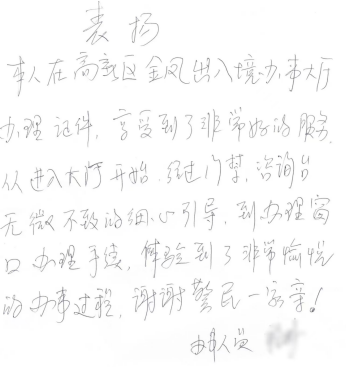 表扬
本人在高新区金凤出入境办事大厅
办理证件，享受到了非常好的服务
从进入大厅开始，经过门禁，咨询台
无微不致的细心引导，到办理窗
口办理手续，体验到了非常愉悦
的办事过程，谢谢警民一家亲！
办事人员